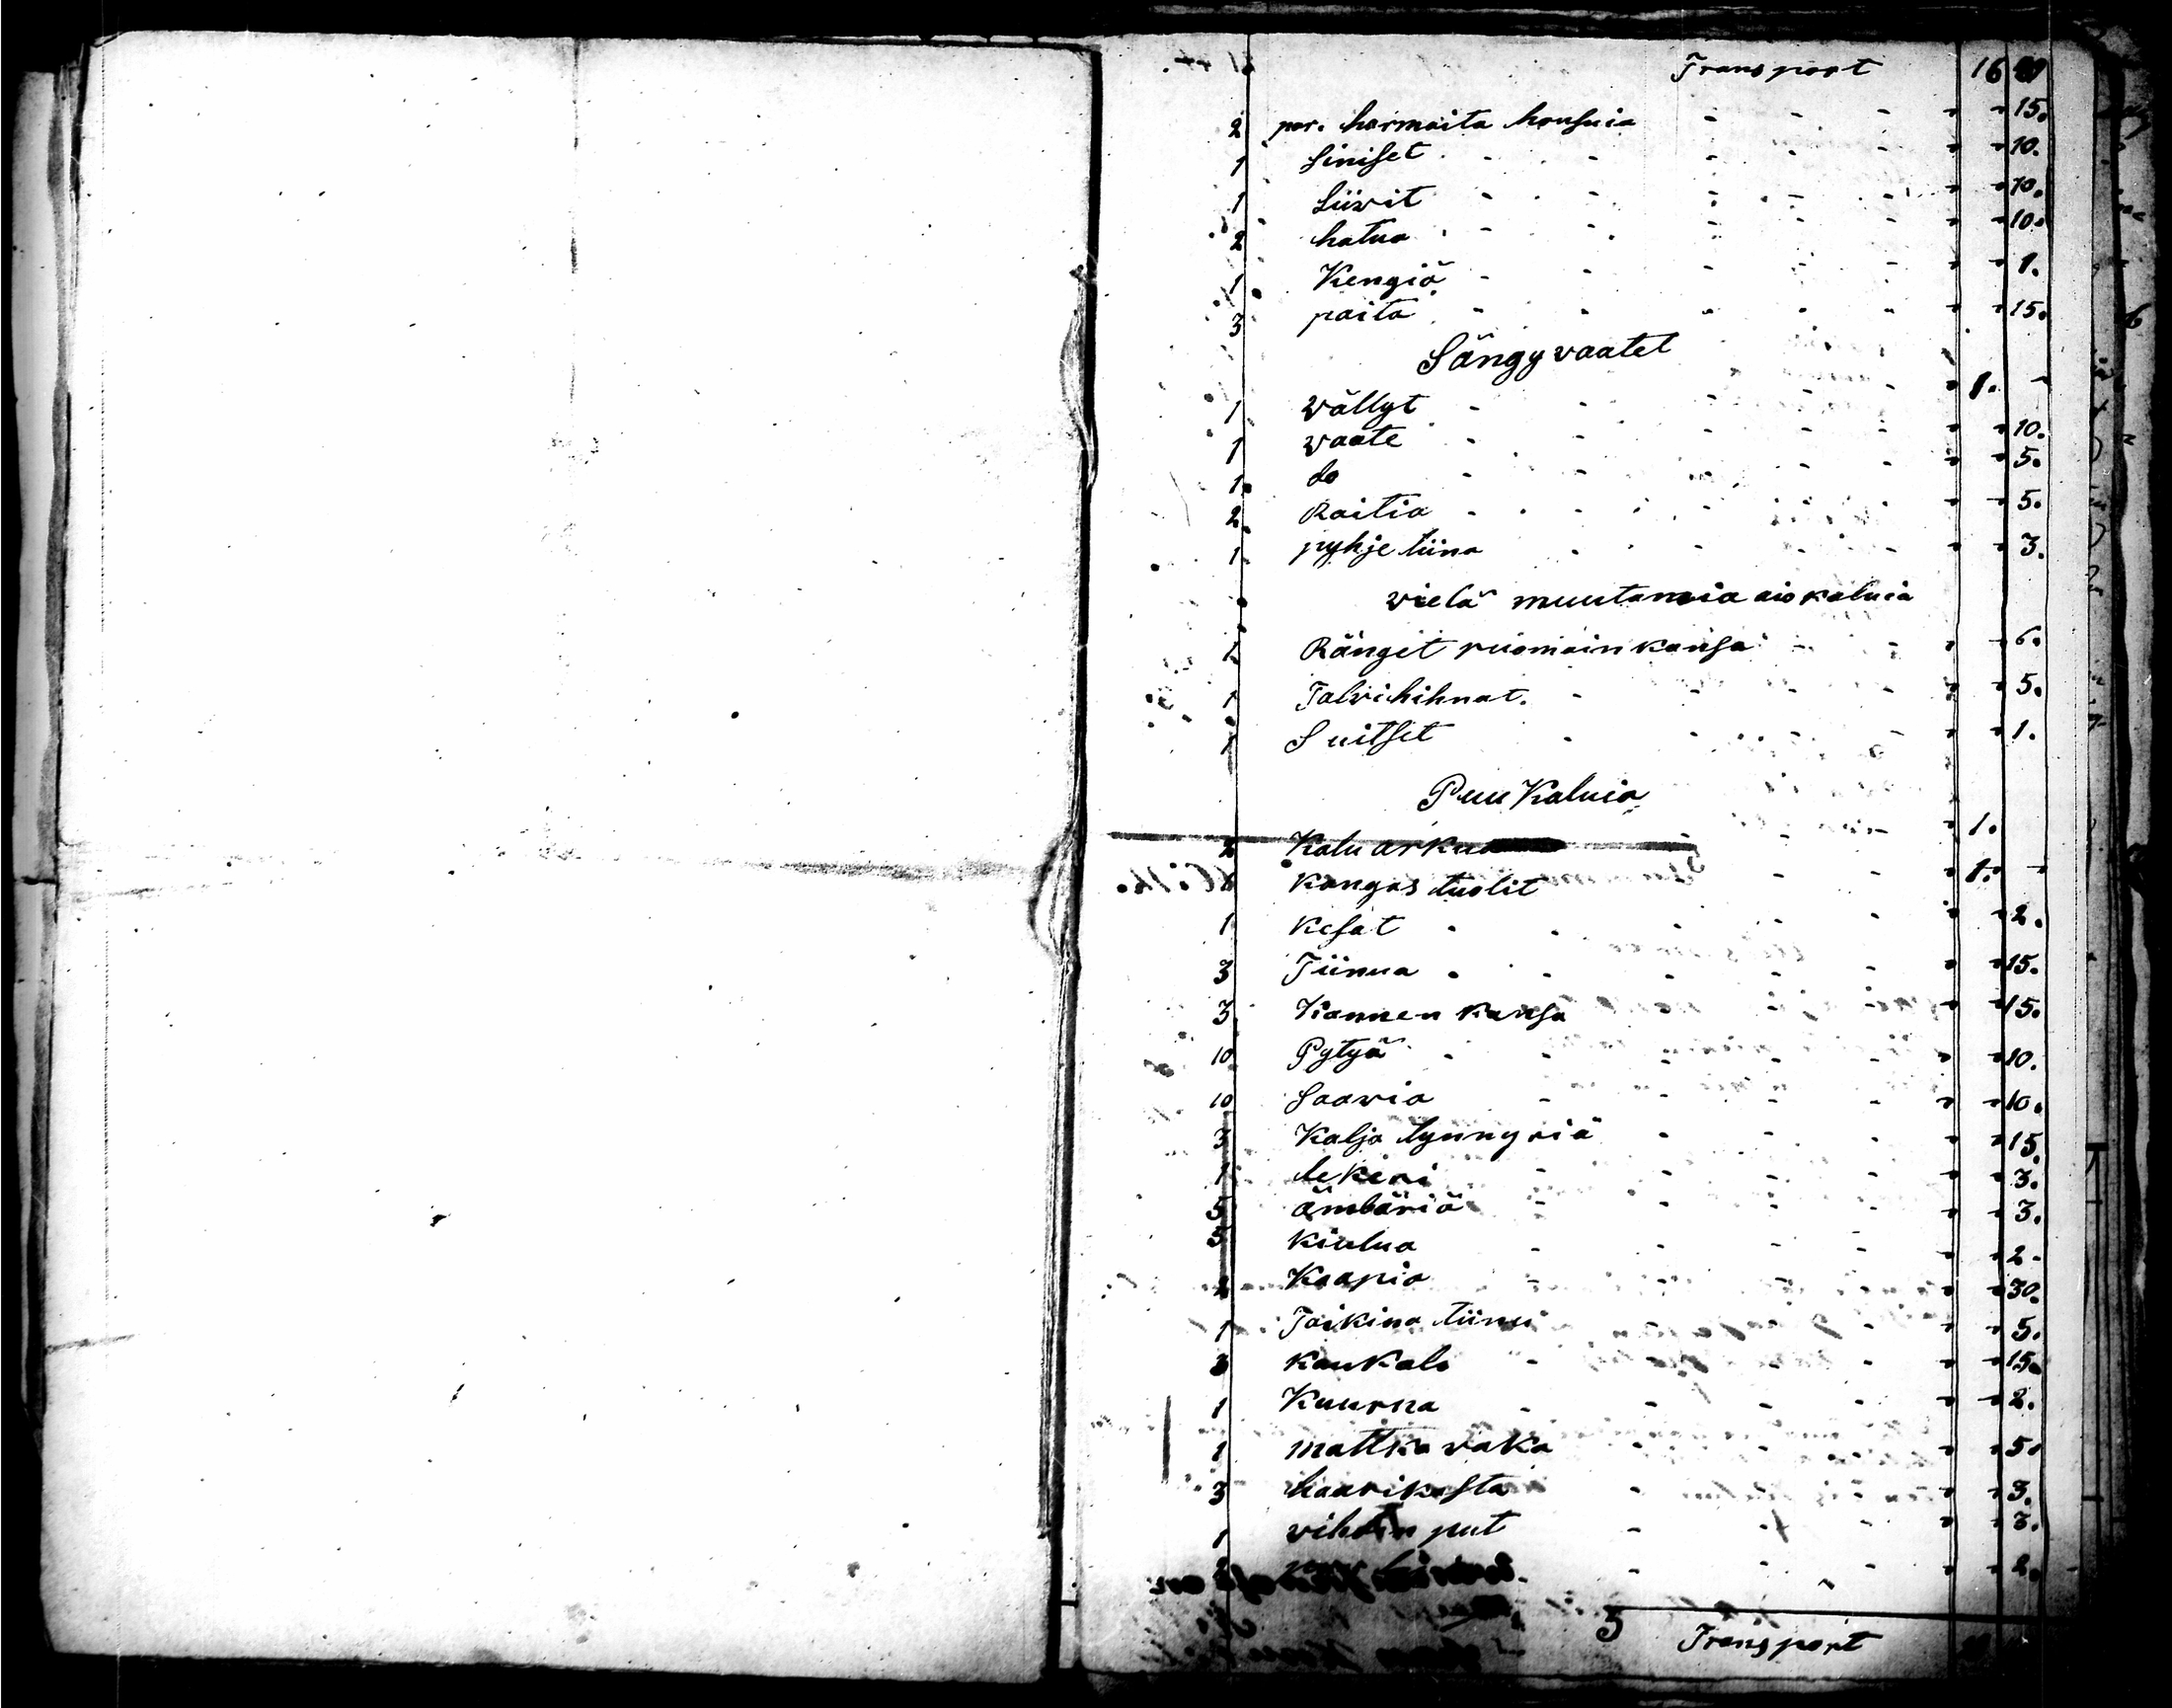 Transport 16
2 par. harmaita housuia - - 15.
1 Siniset - - 10.
1 Liivit - - 10.
2 hatua - - 10.
1 Kengiä - - 1.
3 paita - - 15.
Sängyvaatet
1 vällyt - 1. -
1 vaate - - 10.
1 do - - 5.
2 Raitia - - 5.
1 pyhje liina - - 3.
vielä muutamia aiokaluia
1 Ränget ruomain kansa - - 6.
1 Talvihihnat. - - 5.
1 Suitset - - 1.
Puu Kaluia
2 Kalu arkua - 1.
Kangas tuolit - 1. -
1 Kesat - - 2.
3 Tiinua - - 15.
3 Kannen kansa - - 15.
10 Pytyä - - 10.
10 Saavia - - 10.
3 Kalja tynnyriä - - 15.
1 lekeri - - 3.
5 ämbäriä - - 3.
5 Kiulua - - 2.
2 Kaapia - - 30.
1 Taikina tiinu - - 5.
3 Kaukalo - - 15.
1 Kuurna - - 2.
1 mattka vaka - - 5.
3 haarikasta - - 3.
1 put - - 3.
- - 2.
Transport